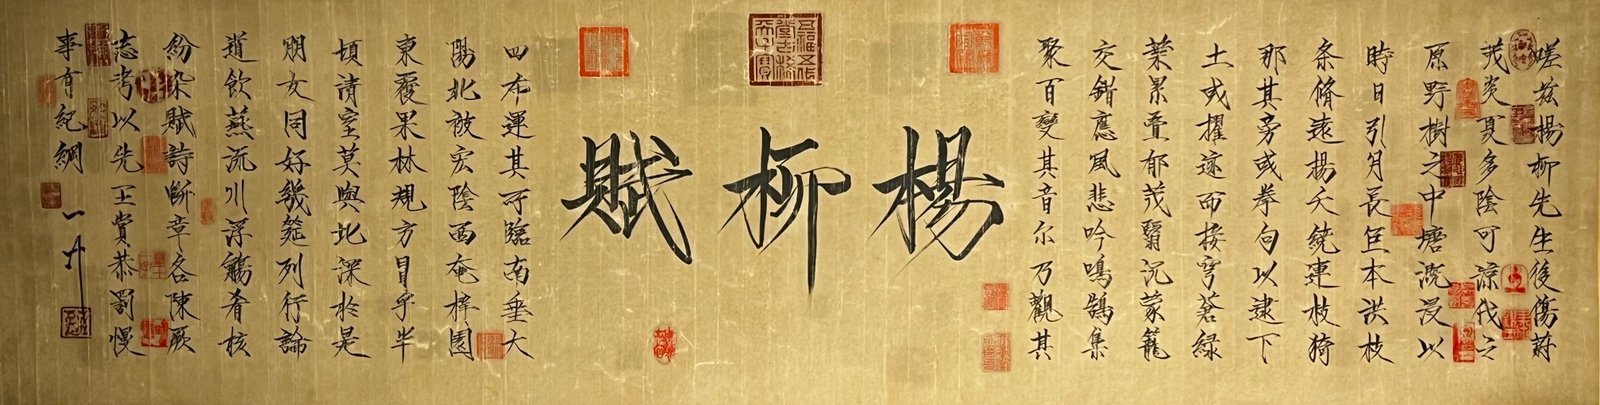 嗟茲楊柳先生後傷蔚
茂炎夏多陰可涼伐之
原野樹之中塘溉浸以
時日引月長巨本洪枝
条脩遠揚夭繞連枝猗
那其旁或拳句以逮下
土或擢迹而接穹蒼緑
葉累疊郁茂翳沉蒙籠
交錯應風悲吟鳴鵠集
聚百變其音尔乃觀其
楊柳賦
五福五代堂古稀天子寶
四布運其所臨南垂大
陽北被宏陰西奄梓園
東覆果林規方冒乎半
頃清室莫與比深於是
朋友同好幾筵列行論
道飲燕流川浮觴肴核
紛杂賦詩断章各陳厥
志考以先王賞恭罰慢
事有紀綱